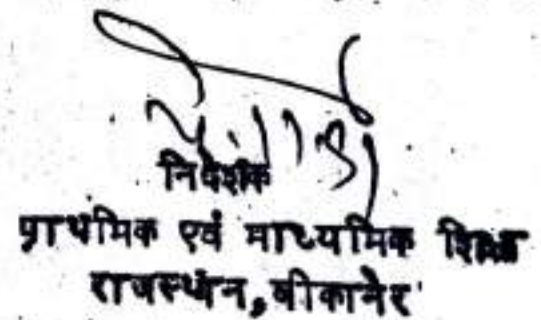 निदेशक
प्राथमिक एवं माध्यमिक शिक्षा
राजस्थान, बीकानेर